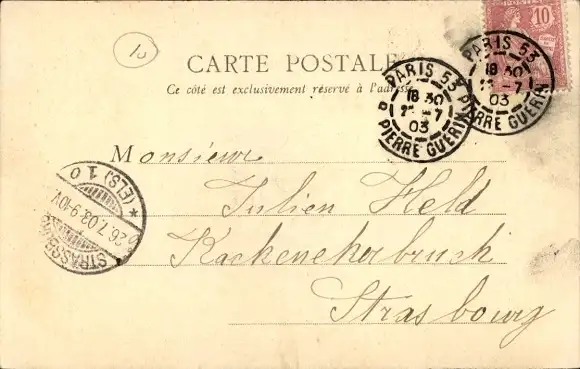 10
CARTE POSTALE
Ce côté est exclusivement réservé à l'adresse
PARIS 53
18 30
-7
03
PIERRE GUERIN
PARIS 53
18 30
-7
03
PIERRE GUERIN
Monsieur
Julien Held
Strasbourg
STRASSBURG
* (ELS) 1 0
26.7.03.9-10V.